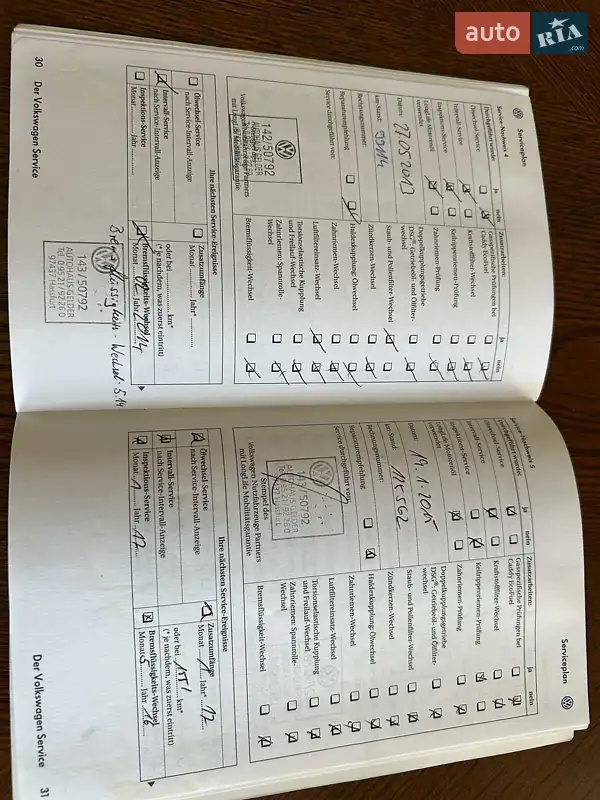 auto RIA .com
Serviceplan
Service-Nachweis 4
Durchgeführt wurde:
ja
nein
Ölwechsel-Service
Intervall-Service
Inspektions-Service
LongLife-Motorenöl
verwendet
Datum:
27.05.2013
km-Stand:
99114
Rechnungsnummer:
Reparaturempfehlung
Service durchgeführt von:
142/50792
AUTOHAUS GELDER
Volkswagen Nutzfahrzeuge Partners
mit LongLife Mobilitätsgarantie
Zusatzarbeiten:
ja
nein
Gasspezifische Prüfungen bei
Caddy EcoFuel
Kraftstofffilter-Wechsel
Keilrippenriemen-Prüfung
Zahnriemen-Prüfung
Doppelkupplungsgetriebe
DSG®: Getriebeöl- und Ölfilter-
wechsel
Staub- und Pollenfilter-Wechsel
Zündkerzen-Wechsel
Haldexkupplung: Ölwechsel
Zahnriemen-Wechsel
Luftfiltereinsatz-Wechsel
Torsionselastische Kupplung
und Freilauf-Wechsel
Zahnriemen: Spannrolle-
Wechsel
Bremsflüssigkeit-Wechsel
Ihre nächsten Service-Ereignisse
Ölwechsel-Service
nach Service-Intervall-Anzeige
Intervall-Service
nach Service-Intervall-Anzeige
Inspektions-Service
Monat Jahr
Zusatzumfänge
Monat Jahr*
oder bei km*
(* je nachdem, was zuerst eintritt)
Bremsflüssigkeits-Wechsel
Monat Jahr 2014
143/50792
AUTOHAUS GELDER
Tel. 09521/9226 0
97437 Hassfurt
Bremsflüssigkeits-Wechsel 5.14
30 Der Volkswagen Service
Serviceplan
Service-Nachweis 5
Durchgeführt wurde:
ja
nein
Ölwechsel-Service
Intervall-Service
Inspektions-Service
LongLife-Motorenöl
verwendet
Datum:
19.1.2015
km-Stand:
Rechnungsnummer:
Reparaturempfehlung
Service durchgeführt von:
143/50792
AUTOHAUS GELDER
Stempel des
Volkswagen Nutzfahrzeuge Partners
mit LongLife Mobilitätsgarantie
Zusatzarbeiten:
ja
nein
Gasspezifische Prüfungen bei
Caddy EcoFuel
Kraftstofffilter-Wechsel
Keilrippenriemen-Prüfung
Zahnriemen-Prüfung
Doppelkupplungsgetriebe
DSG®: Getriebeöl- und Ölfilter-
wechsel
Staub- und Pollenfilter-Wechsel
Zündkerzen-Wechsel
Haldexkupplung: Ölwechsel
Zahnriemen-Wechsel
Luftfiltereinsatz-Wechsel
Torsionselastische Kupplung
und Freilauf-Wechsel
Zahnriemen: Spannrolle-
Wechsel
Bremsflüssigkeit-Wechsel
Ihre nächsten Service-Ereignisse
Ölwechsel-Service
nach Service-Intervall-Anzeige
Intervall-Service
nach Service-Intervall-Anzeige
Inspektions-Service
Monat 1 Jahr 17
Zusatzumfänge
Monat 1 Jahr* 17
oder bei km*
(* je nachdem, was zuerst eintritt)
Bremsflüssigkeits-Wechsel
Monat 5 Jahr 16
Der Volkswagen Service 31